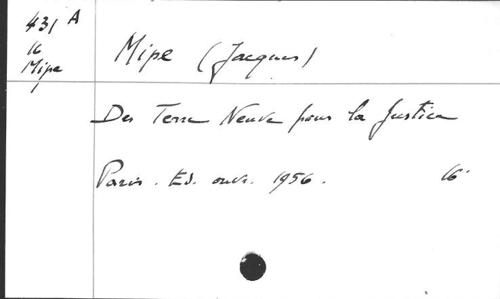 431 A
16
Mipe
Mipe (Jacques)
Des Terre Neuve pour la Justice
Paris. Ed. ouvr. 1956. 16°